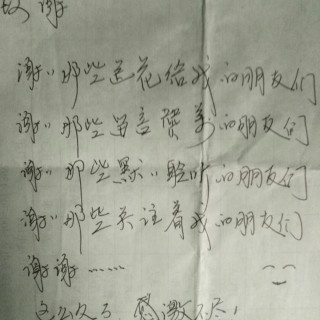 致谢
谢谢那些送花给我的朋友们
谢谢那些留言赞美的朋友们
谢谢那些默默聆听的朋友们
谢谢那些关注着我的朋友们
谢谢……
这么久了，感激不尽！